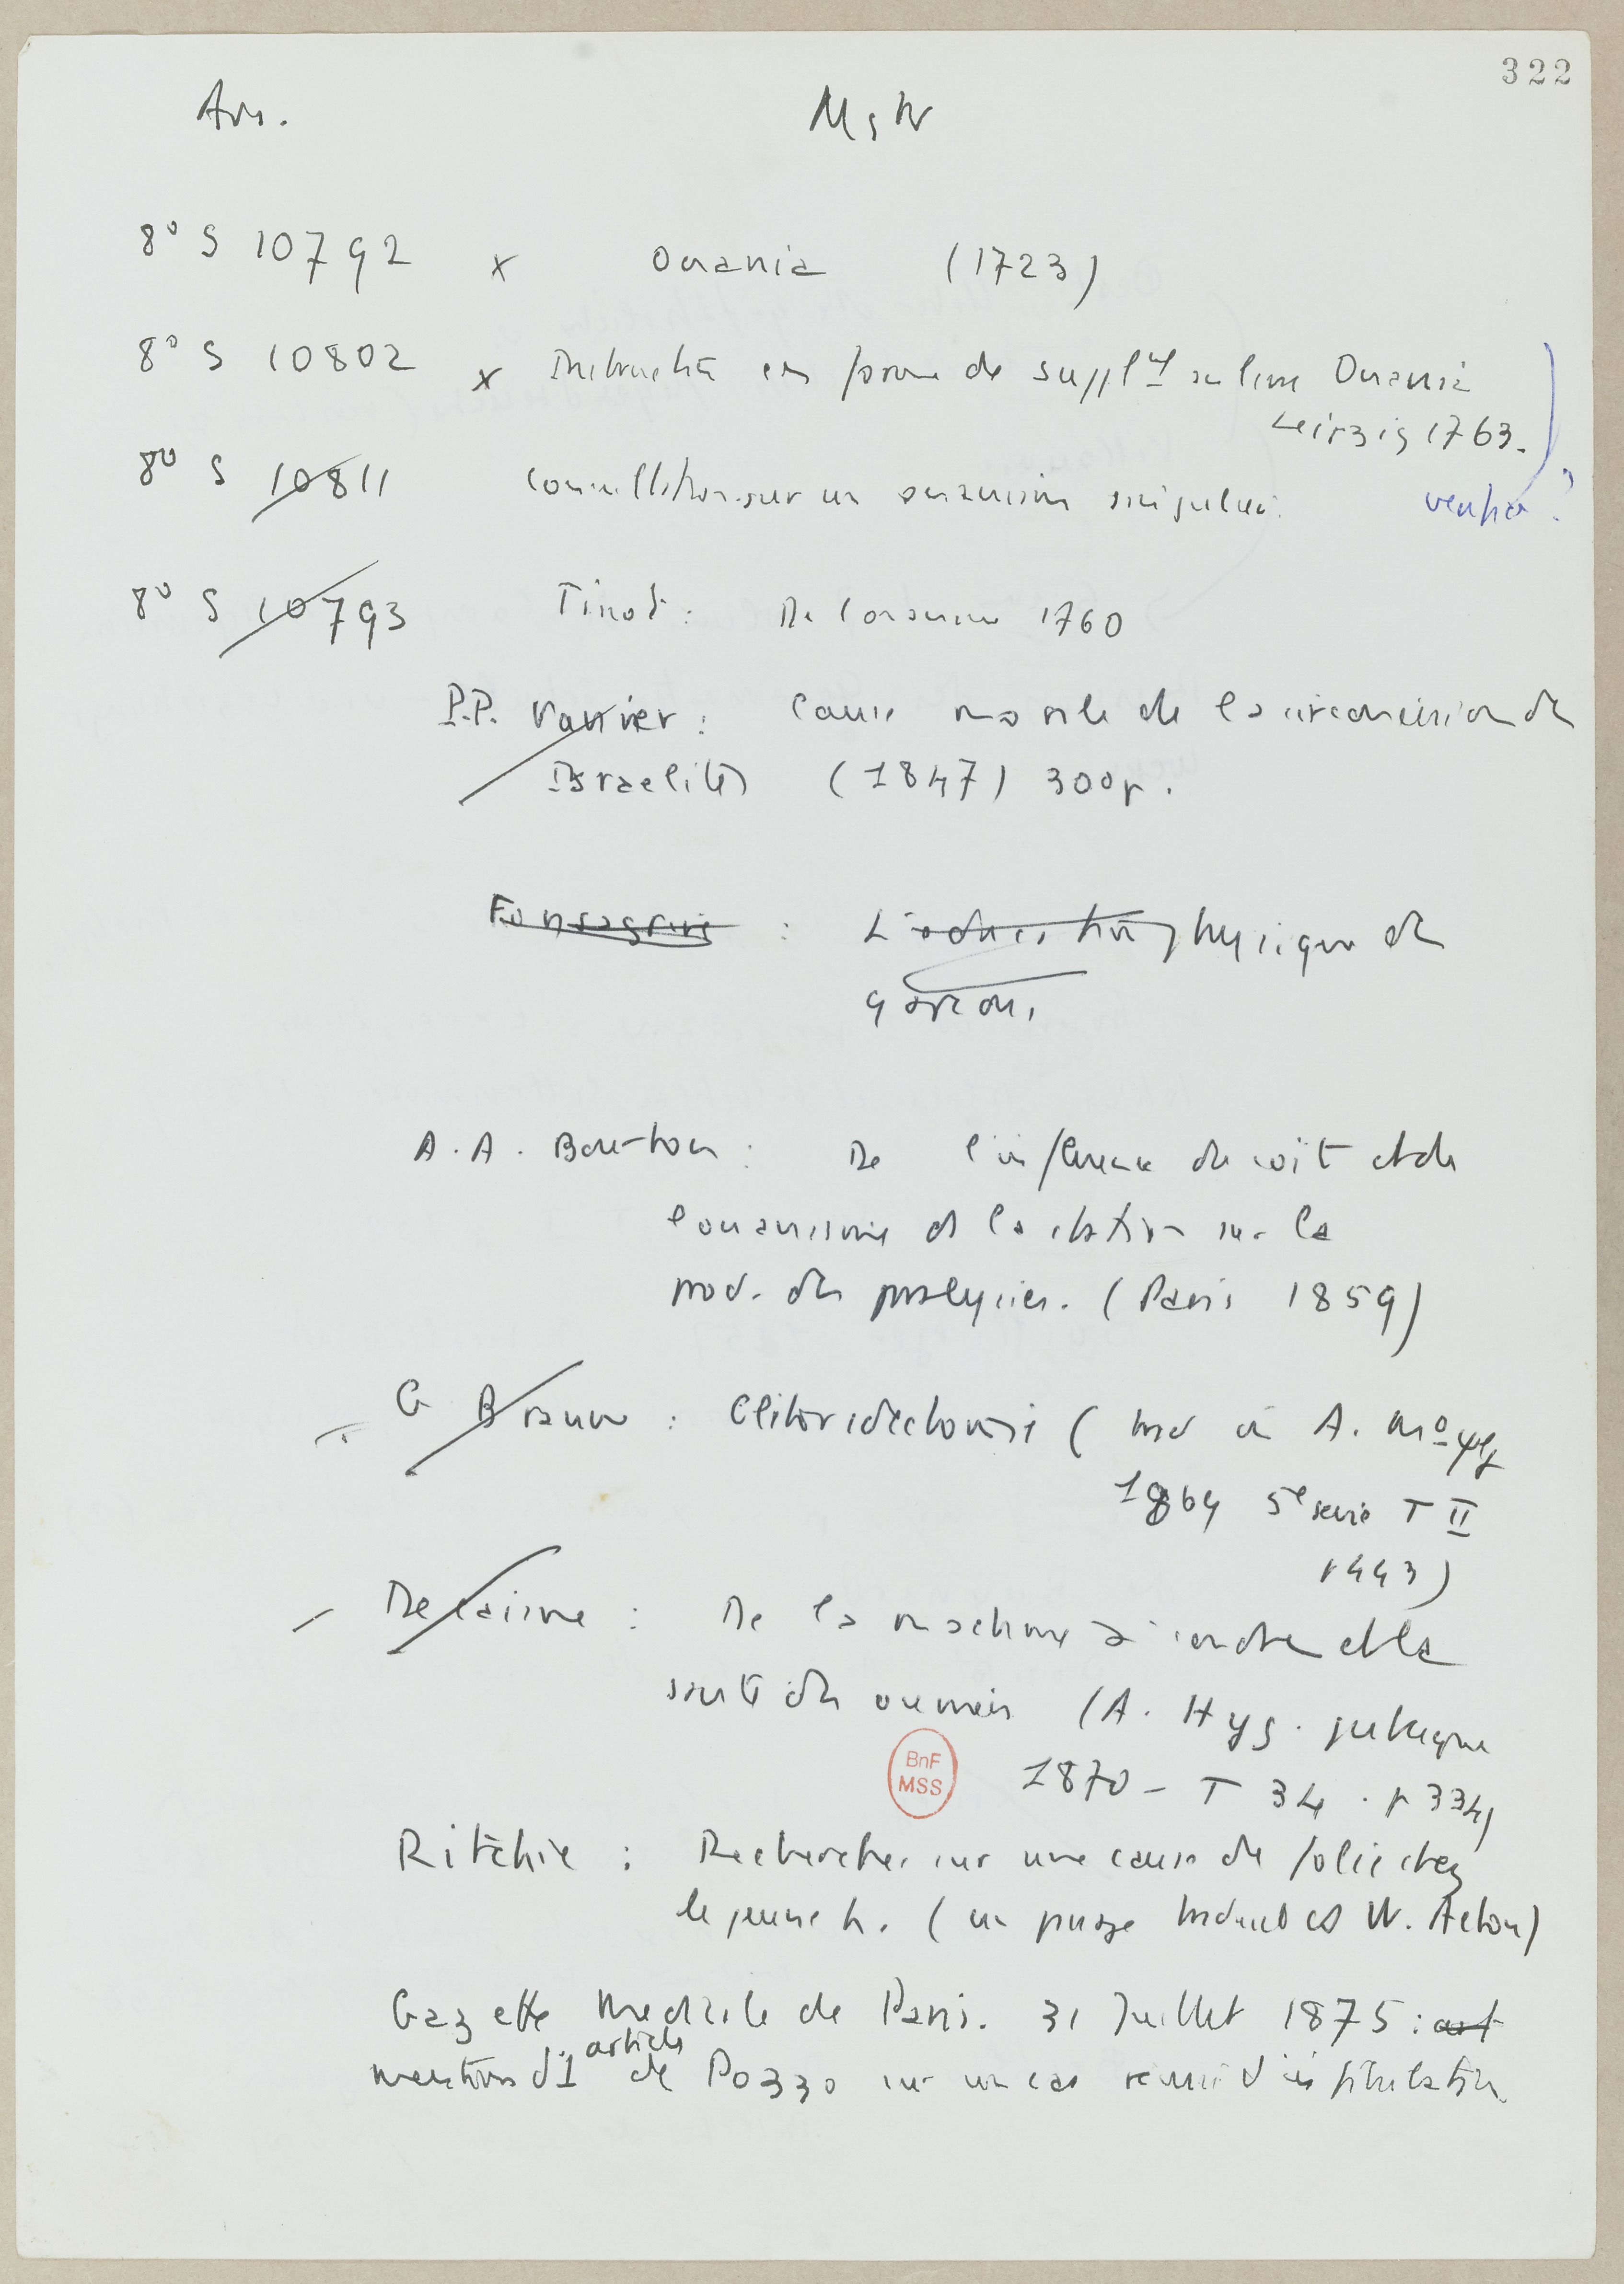 322
Ars. Mstr
8° S 10792 x Onania (1723)
8° S 10802 x Instruction en forme de supplt au livre Onania
Leipzig 1763.
8° S 10811 sur un onanisme singulier.
8° S 10793 Tissot : De l'onanisme 1760
P.P. Vanier : Cause morale de la circoncision des
Israelites (1847) 300p.
Fonssagrive : L'éducation physique des
garçons
A. A. Bourbon : De l'influence du coït et de
l'onanisme ds la station sur la
prod. des paralysies. (Paris 1859)
G Braun : Clitoridectomie ( trad in A. Mo ψlg
1864 5e serie T II
p 443)
Decaisne : De la machine à coudre et la
santé des ouvrières (A. Hyg. publique
1870 - T 34 . p 334)
Ritchie : Recherches sur une cause de folie chez
le jeune h. (un passage traduit ds W. Acton)
Gazette Medicale de Paris. 31 Juillet 1875 : art
mention d'1 article de Pozzo sur un cas d'infibulation
BnF
MSS